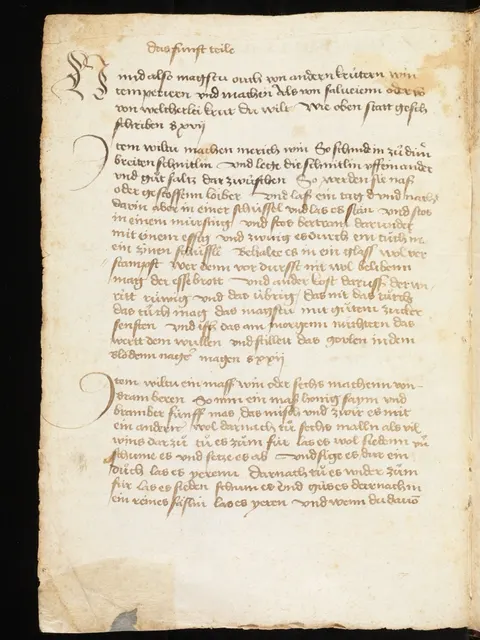 das funft teile
Vnd also magstu ouch von andern krütern win
temperieren vnd machen Als von salueienn oder
von welcherlei krut du wilt Wie oben statt gesch
schriben xxvij
Item wiltu machen merich win So schnid in zü
breiten schnitlin vnd lege die schnitlin vff einander
vnd güt saltz dar zwüschen So werden sie naß
oder gestossenn lorber vnd laß ein tag d vnd nacht
darin aber in einer schüssel vnd las es stan vnd stos
in einem mürsing vnd stos bertram darunder
mit einem essig vnd zwing es durch ein tüch in
ein zinen schüssle Behalte es in ein glaß wol ver
stampft
mag der essi brott vnd ander kost daruss der
vnd das übrig das mit das durch
das tüch mag das magstu mit gütem zucker
senften vnd iss das am morgenn nüchtern das
wertt dem wullen vnd stillen das in dem
magen xxij
Item wiltu ein mass win oder sechs machenn von
bramberen So nim ein maß honig saym vnd
bramber fünff mas das misch vnd zwir es mit
ein ander wol darnach tü sechs malln als vil
wins dar zü tü es züm für las es wol siedenn vn
schume es vnd setze es ab vnd sige es dur ein
düch las es yerenn Darnach tü es wider züm
für las es sieden schum es vnd güs es dernach in
ein reines fäslin las es yeren vnd wenn du dauo